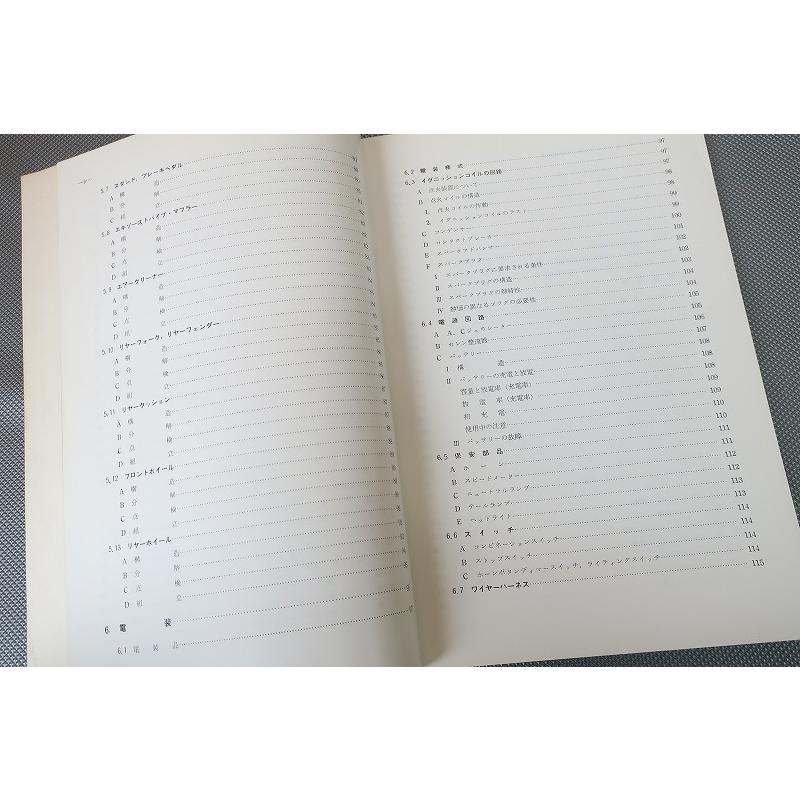 5.7 スタンド, ブレーキペダル
A 構 造
B 分 解
C 組 立
5.8 エキゾーストパイプ, マフラー
A 構 造
B 分 解
C 点 検
D 組 立
5.9 エアークリーナー
A 構 造
B 分 解
C 点 検
D 組 立
5.10 リヤーフォーク, リヤーフェンダー
A 構 造
B 分 解
C 点 検
D 組 立
5.11 リヤークッション
A 構 造
B 分 解
C 点 検
D 組 立
5.12 フロントホイール
A 構 造
B 分 解
C 点 検
D 組 立
5.13 リヤーホイール
A 構 造
B 分 解
C 点 検
D 組 立
6. 電 装
6.1 電 装 品
6.2 電 装 様 式 97
6.3 イグニッションコイルの回路 97
A 点火装置について 97
B 点火コイルの構造 98
1. 点火コイルの作動 98
2. イグニッションコイルのテスト 99
C コンデンサー 99
D コンタクトブレーカー 100
E スパークアドバンサー 101
F スパークプラグ 102
I スパークプラグに要求される条件 102
II スパークプラグの構造 103
III スパークプラグの熱特性 104
IV 熱価の異なるプラグの必要性 104
6.4 電 源 回 路 105
A A.Cジェネレーター 105
B セレン整流器 106
C バッテリー 107
I 構 造 108
II バッテリーの充電と放電 108
容量と放電率(充電率) 108
放 電 率(充電率) 109
初 充 電 109
使用中の注意 110
III バッテリーの故障 110
6.5 保 安 部 品 111
A ホ ー ン 111
B スピードメーター 112
C ニュートラルランプ 112
D テールランプ 113
E ヘッドライト 113
6.6 ス イ ッ チ 114
A コンビネーションスイッチ 114
B ストップスイッチ 114
C ホーンボタンディマースイッチ, ライティングスイッチ 114
6.7 ワイヤーハーネス 115